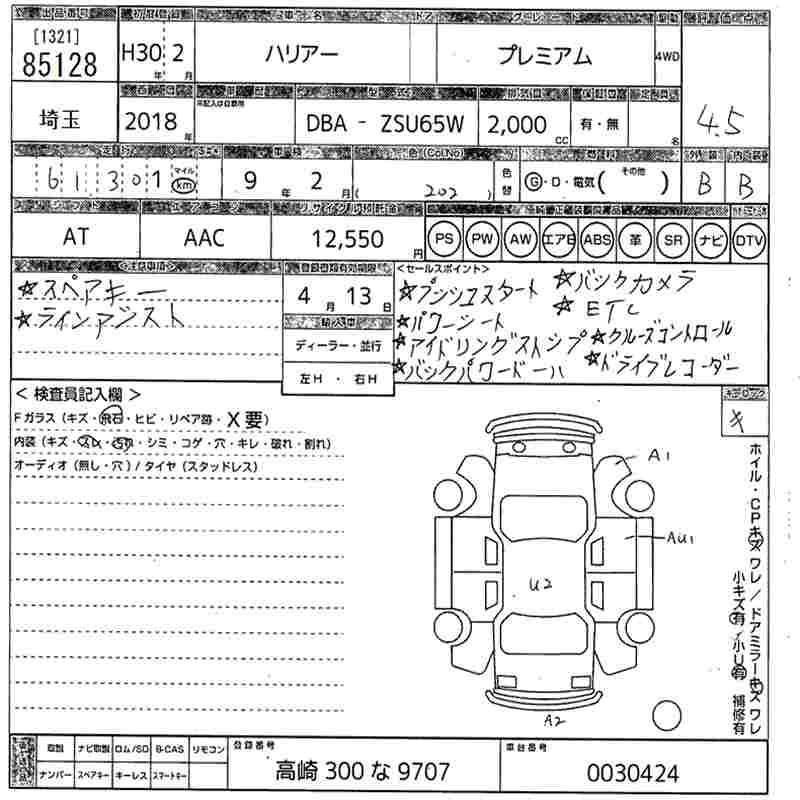 出品番号 初度登録 車名 ドア グレード 駆動 評価点
[1321]
85128 H30年 2月 ハリアー プレミアム 4WD 4.5
埼玉 2018年 DBA - ZSU65W 2,000cc 有・無 名
型式 排気量
走行 車検 色(ColNo) 燃料 外装 内装
61,301 マイル km 9年 2月 ( 202 ) 色替 G・D・電気 (その他 ) B B
シフト エアコン リサイクル預託金
AT AAC 12,550円 PS PW AW エアB ABS 革 SR ナビ DTV
<注意事項> 登録書類有効期限 <セールスポイント>
☆スペアキー 4月 13日 ☆プッシュスタート ☆バックカメラ
☆ラインアシスト ☆パワーシート ☆ETC
輸入車 ☆アイドリングストップ ☆クルーズコントロール
ディーラー・並行 ☆バックパワードーハ ☆ドライブレコーダー
左H・右H
<検査員記入欄>
Fガラス (キズ・飛石・ヒビ・リペア跡・X要)
内装 (キズ・スレ・汚れ・シミ・コゲ・穴・キレ・破れ・割れ)
オーディオ (無し・穴) / タイヤ (スタッドレス)
キ
A1
AU1
U2
A2
ホイル・CPキズワレ/ドアミラーキズワレ
小キズ有/小U有 補修有
取説 ナビ取説 ロム/SD B-CAS リモコン 登録番号 車台番号
ナンバー スペアキー キーレス スマートキー 高崎 300 な 9707 0030424